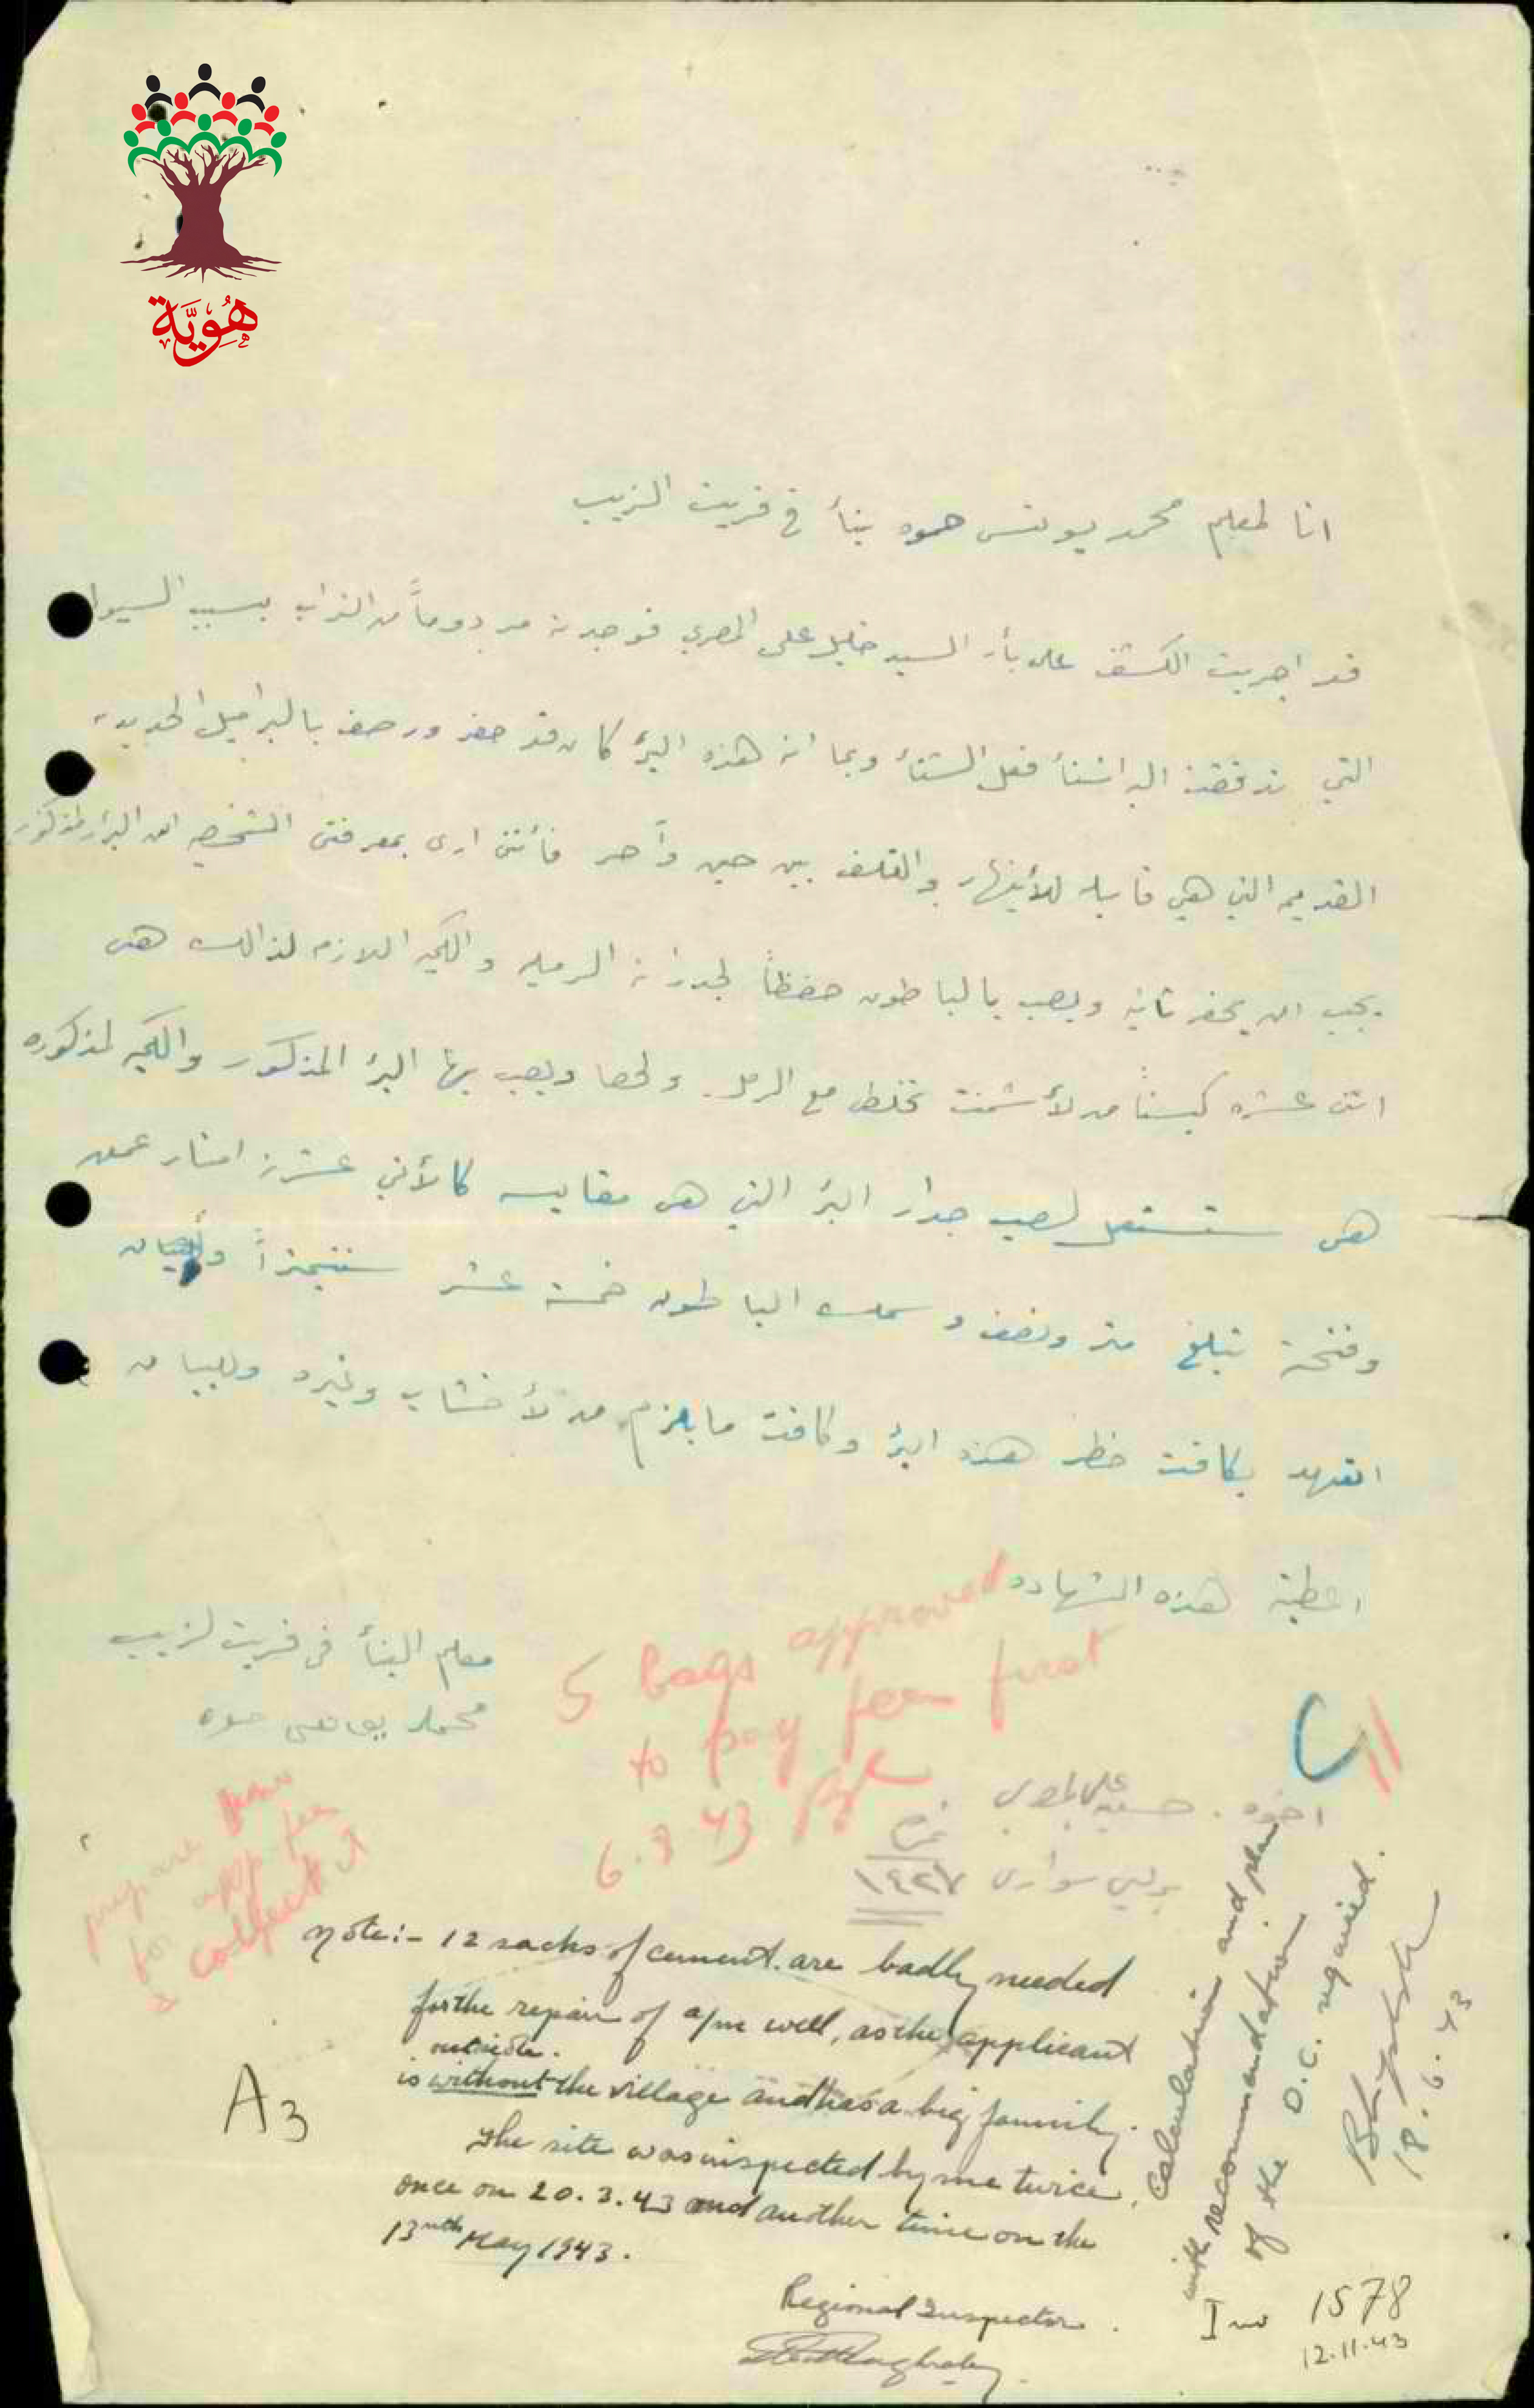 هُوِيَّة
انا لمعلم محمد يونس حموه بنأ في قريت الزيب
قد اجريت الكشف على بأر السيد خليل علي المصري فوجدته مردوماً من التراب بسبب السيول
التي تدفقت اليه اثنأ فصل الشتأ وبما ان هذه البئر كان قد حفر ورصف بالبراميل الحديديه
القديمه التي هي قابله للأنهيار والتلف بين حين وآخر فأنني ارى بمعرفتي الشخصيه ان البئر المذكور
يجب ان يحفر ثانيه ويصب بالباطون حفظاً لجدرانه الرمليه والكميه اللازمه لذالك هي
اثنى عشره كيساً من لأسمنت تخلط مع الرمل ولحصا ويصب بها البئر المذكور والكميه لمذكوره
هي ستستعمل لصب جدار البئر التي هي مقايسه كالأتي عشرة امتار عمق
وفتحة تبلغ متر ونصف وسمك الباطون خمسة عشر سنتيمتراً
اتعهد بكافت خطر هذه البئر وكافت ما يلزم من لأخشاب وغيره وللبيان
اعطية هذه الشهاده
معلم البنأ في قريت لزيب
محمد يونس حموه
5 bags approved
to pay fee first
6.8.43
اخوه حسين علي المصري
بوليس سواري نمره
١٤٢٧
prepare
for app fee
& collect it
note:- 12 sacks of cement are badly needed
for the repair of a/m well, as the applicant
outside.
is without the village and has a big family.
The site was inspected by me twice,
once on 20.3.43 and another time on the
13nth May 1943.
Regional Inspector.
A3
Calculation and plan
with recommendation
of the D.C. required.
18.6.43
Inv 1578
12.11.43